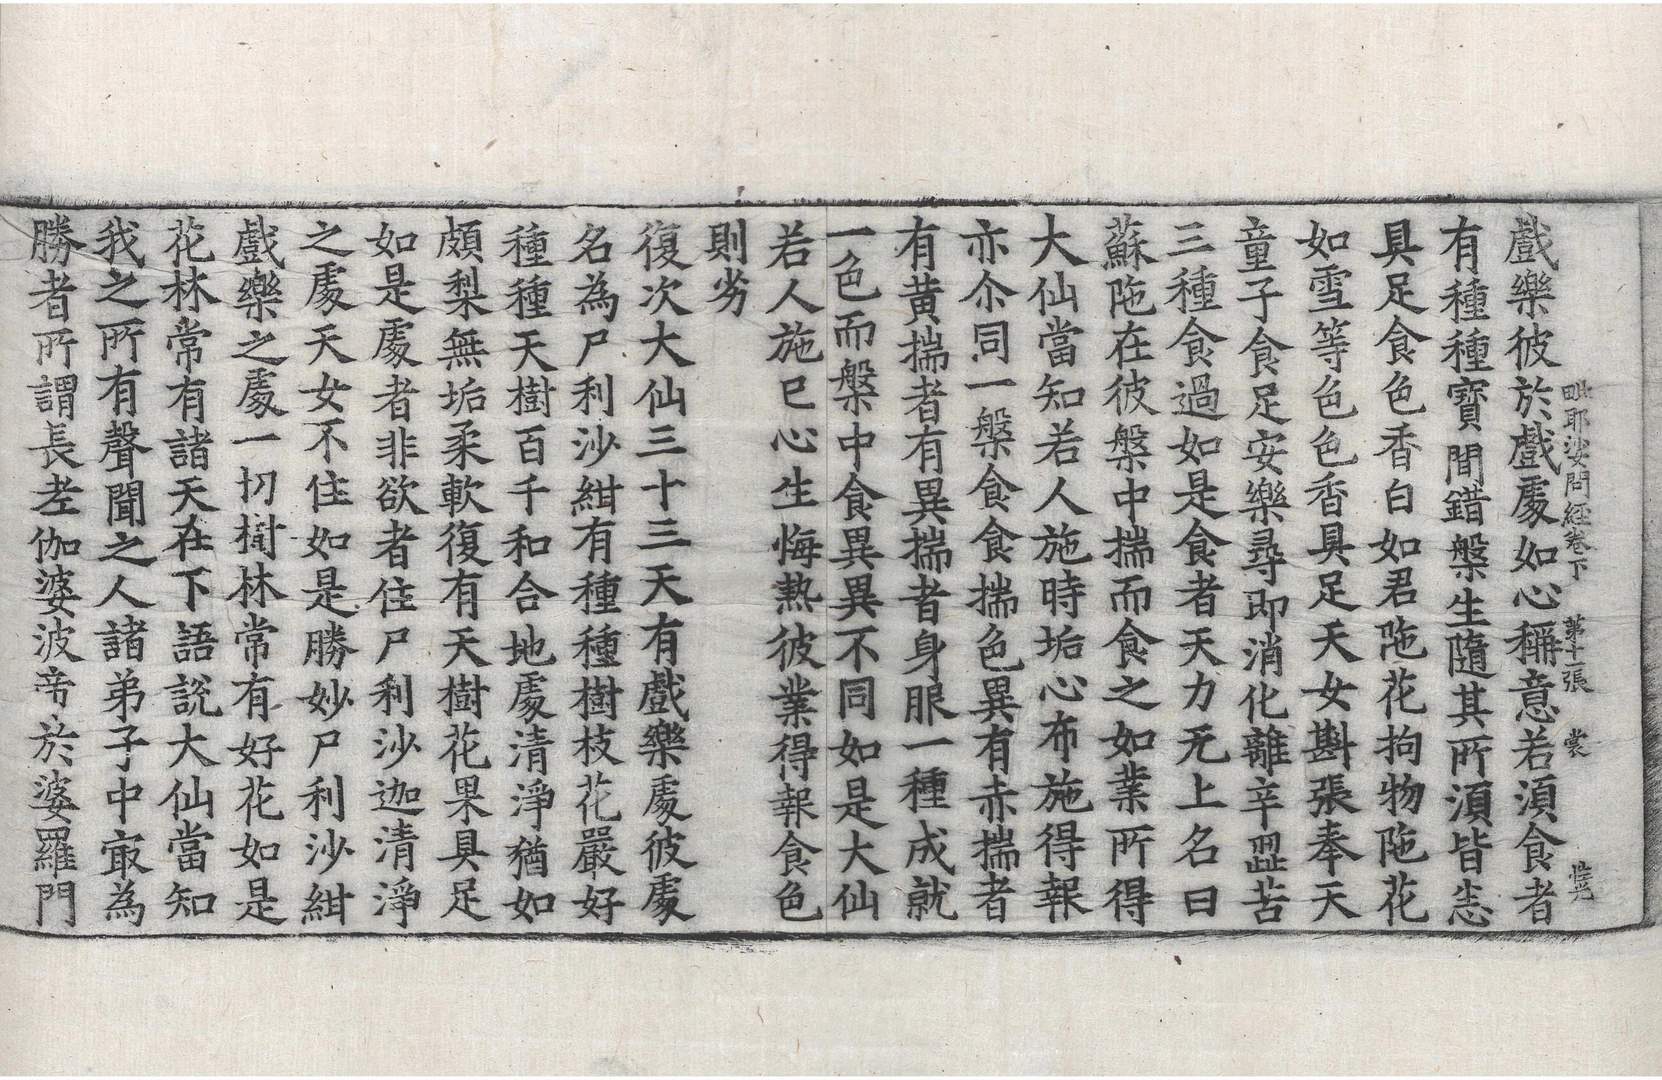 毗耶娑問經卷下　第十二張　裳
戲樂彼於戲處如心稱意若湏食者
有種種寶間錯槃生隨其所湏皆悉
具足食色香白如君陁花拘物陁花
如雪等色色香具足天女斟張奉天
童子食足安樂尋即消化離辛澀苦
三種食過如是食者天力无上名曰
蘇陁在彼槃中揣而食之如業所得
大仙當知若人施時垢心布施得報
亦尒同一槃食食揣色異有赤揣者
有黄揣者有異揣者身眼一種成就
一色而槃中食異異不同如是大仙
若人施已心生悔熱彼業得報食色
則劣
復次大仙三十三天有戲樂處彼處
名為尸利沙紺有種種樹枝花嚴好
種種天樹百千和合地處清淨猶如
頗梨無垢柔軟復有天樹花果具足
如是處者非欲者住尸利沙迦清淨
之處天女不住如是勝妙尸利沙紺
戲樂之處一切樹林常有好花如是
花林常有諸天在下語說大仙當知
我之所有聲聞之人諸弟子中㝡為
勝者所謂長老伽婆波帝於婆羅門